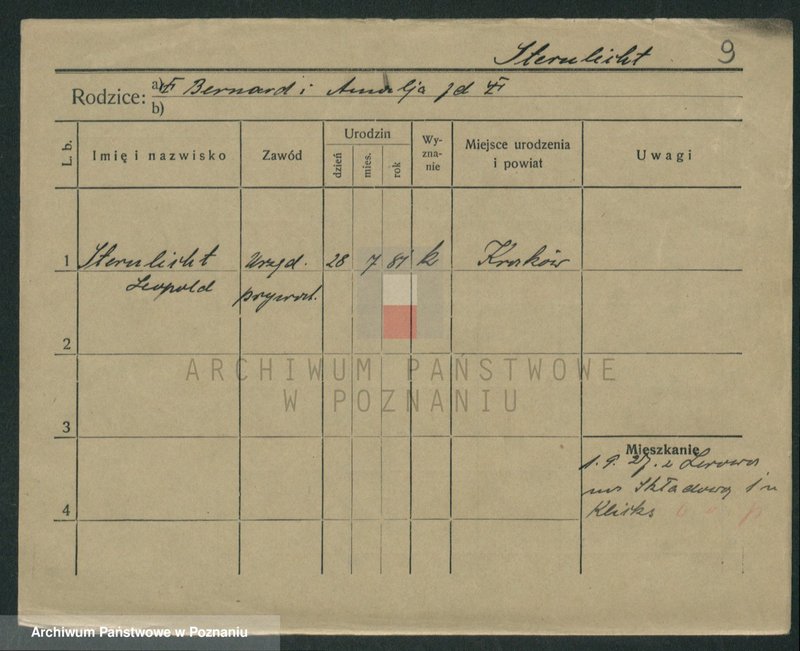 Sternlicht 9
Rodzice: a) Bernard i Amalja
b)
L. b. Imię i nazwisko Zawód Urodzin dzień mies. rok Wy-zna-nie Miejsce urodzenia i powiat Uwagi
1 Sternlicht Urzęd. 28 7 81 k Kraków
Leopold prywat.
2
ARCHIWUM PAŃSTWOWE
W POZNANIU
3
Mieszkanie
1. 9. 27. z
na Składową 1 u
4
Archiwum Państwowe w Poznaniu